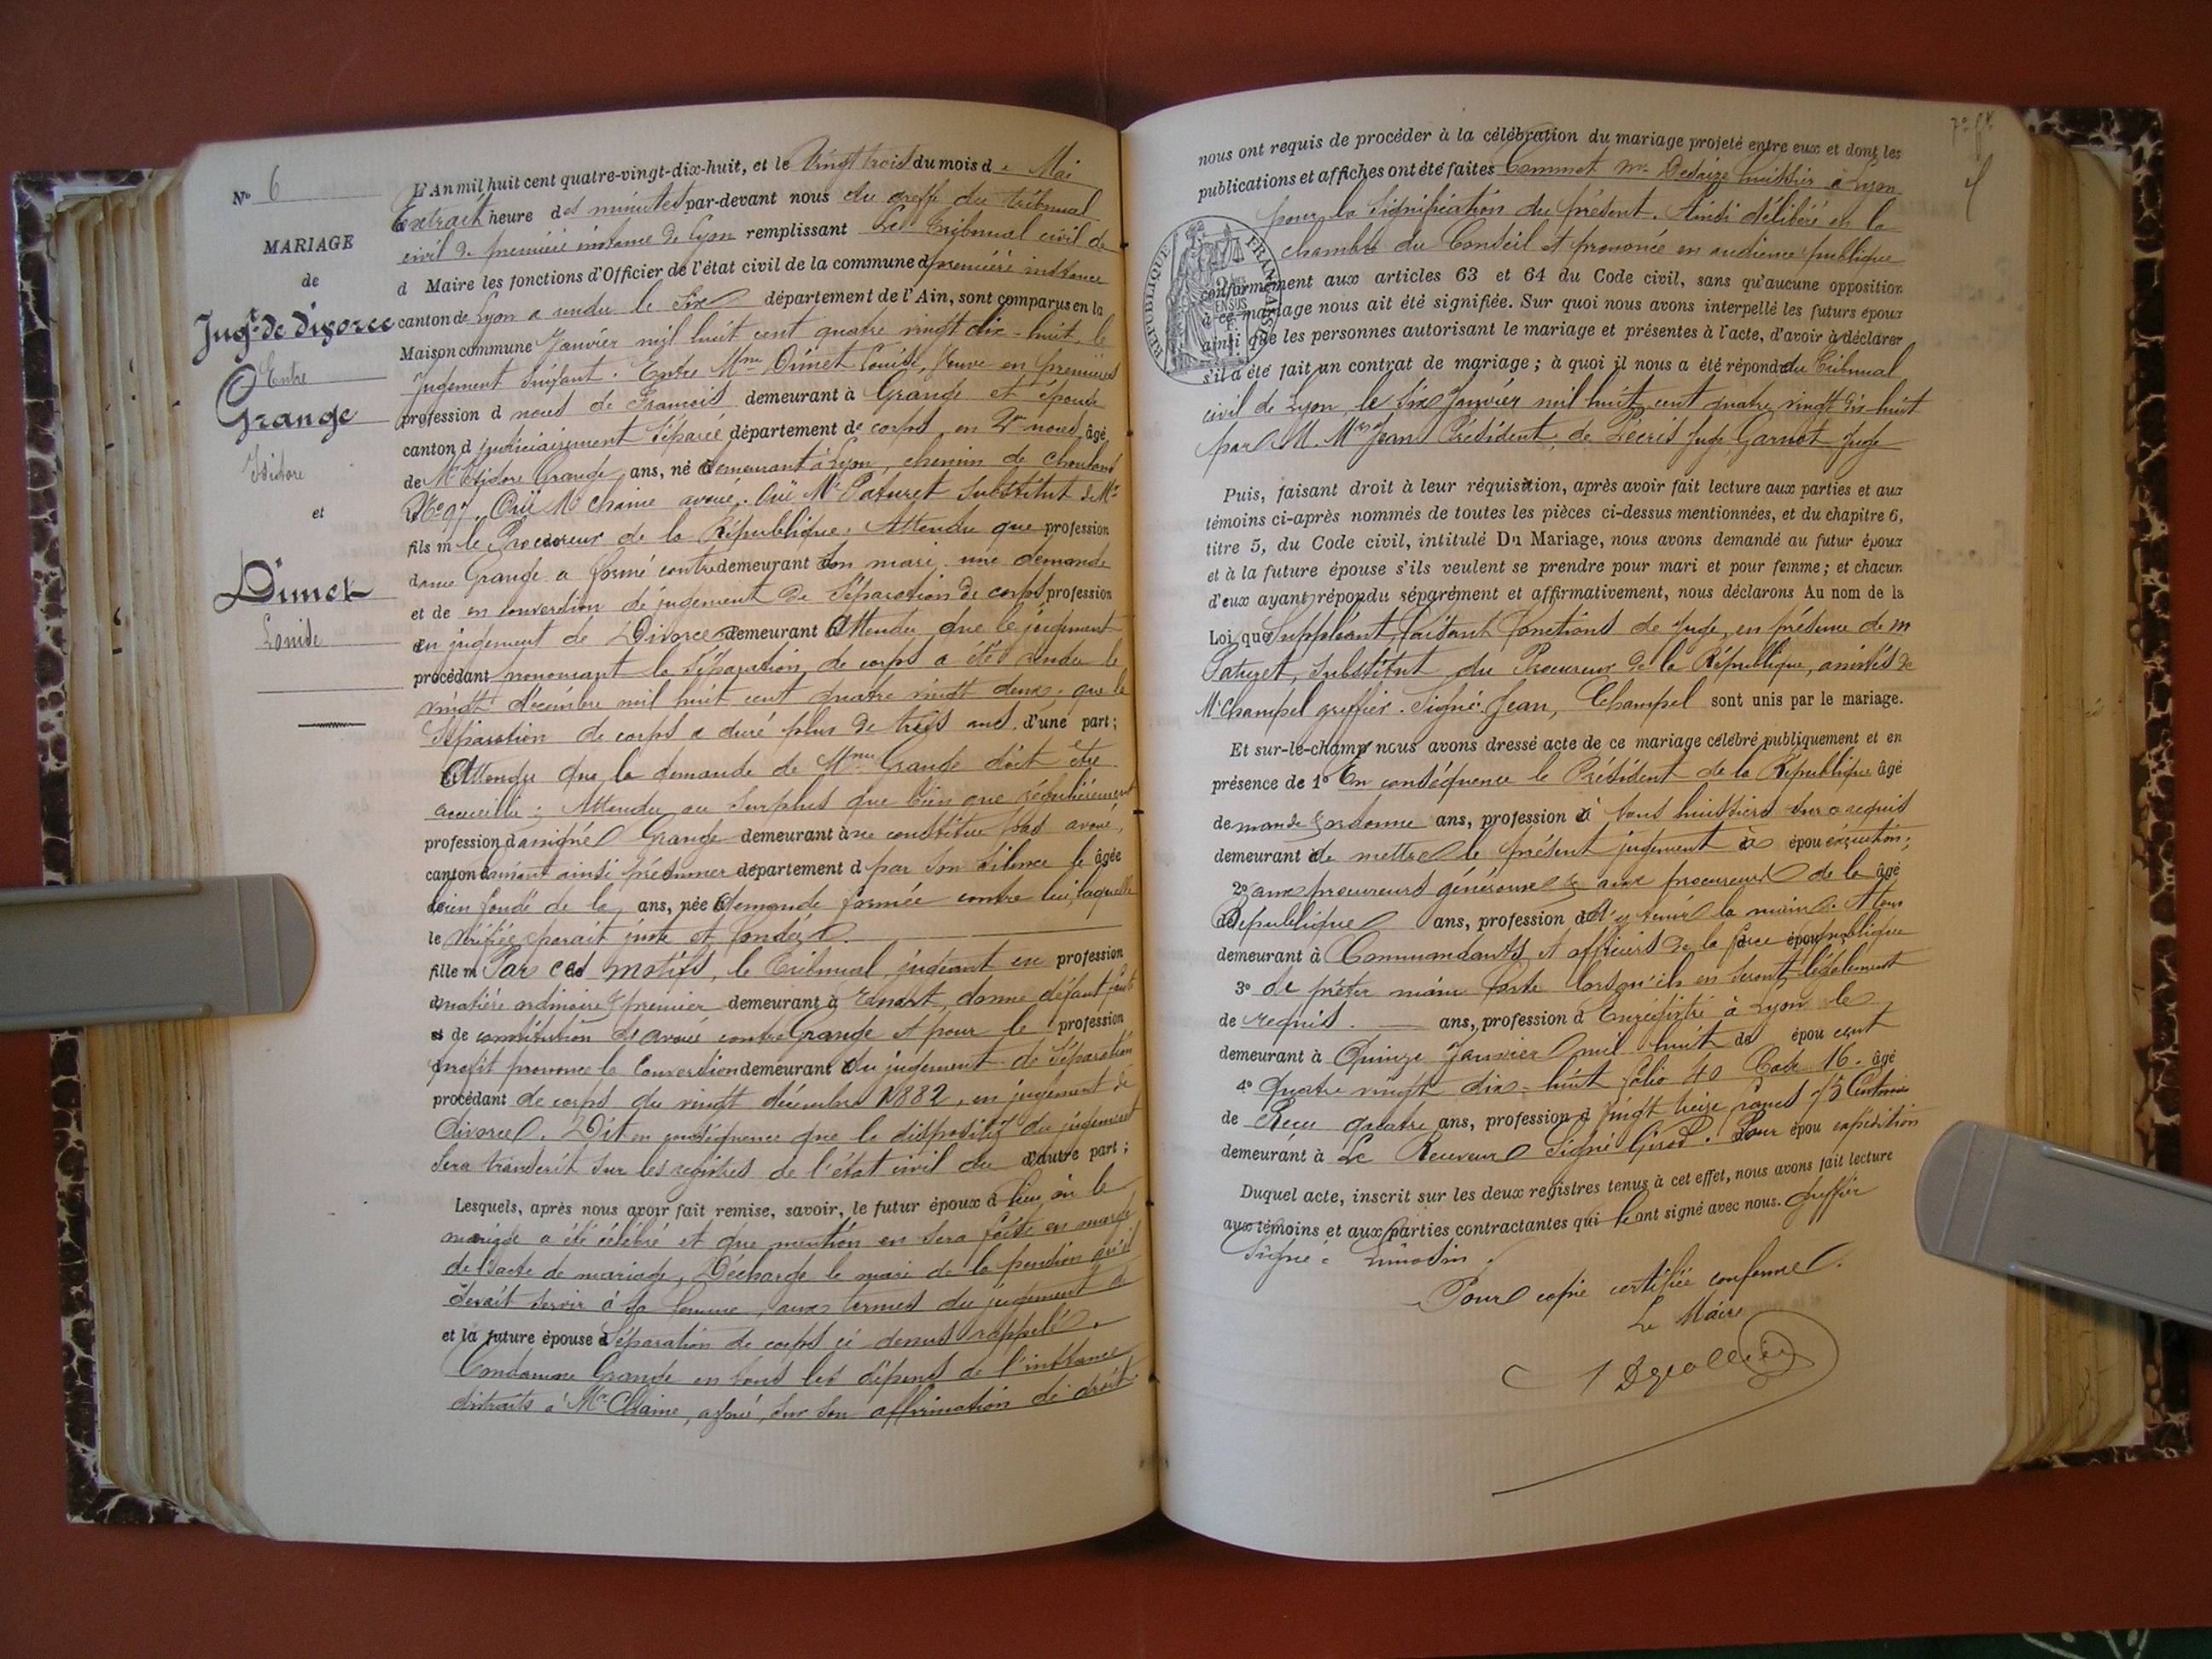 N° 6
MARIAGE
de
Jugt de divorce
Entre
Grange
Isidore
et
Dimet
Louise
L'An mil huit cent quatre-vingt-dix-huit, et le Vingt trois du mois de Mai
Extrait heure des minutes par-devant nous du greffe du tribunal
civil de première instance de Lyon remplissant Le Tribunal civil de
d Maire les fonctions d'Officier de l'état civil de la commune d première instance
canton de Lyon a rendu le Six département de l'Ain, sont comparus en la
Maison commune Janvier mil huit cent quatre vingt dix-huit, le
jugement suivant. Entre Mme Dimet Louise, veuve en premières
profession d noces de François demeurant à Grange et épouse
canton d judiciairement séparée département de corps, en 2me noces, âgé
de Mr Isidore Grange, ans, né demeurant à Lyon, chemin de Choulans
No 97. Ouï Me Chaine avoué. Ouï Mr Paturet Substitut de Mr
fils m le Procureur de la République. Attendu que profession
dame Grange a formé contre demeurant son mari une demande
et de en conversion de jugement de Séparation de corps profession
en jugement de Divorce demeurant Attendu que le jugement
procédant prononçant la Séparation de corps a été rendu le
vingt décembre mil huit cent quatre vingt deux; que la
Séparation de corps a duré plus de trois ans. d'une part;
Attendu que la demande de Mme Grange doit être
accueillie; Attendu au surplus que bien que régulièrement
profession d assigné Grange demeurant à ne constitue pas avoué,
canton d laissant ainsi présumer département d par son silence le âgée
de bien fondé de la ans, née demande formée contre lui, laquelle
le vérifiée parait juste et fondée.
fille m Par ces motifs, le Tribunal, jugeant en profession
d matière ordinaire & premier demeurant à ressort, donne défaut faute
et de constitution d'avoué contre Grange et pour le profession
profit prononce la Conversion demeurant du jugement de Séparation
procédant de corps du vingt décembre 1882, en jugement de
divorce. Dit en conséquence que le dispositif du jugement
sera transcrit sur les registres de l'état civil du d'autre part;
Lesquels, après nous avoir fait remise, savoir, le futur époux d lieu où le
mariage a été célébré et que mention en sera faite en marge
de l'acte de mariage, Décharge le mari de la pension qu'il
devait servir à sa femme, aux termes du jugement de
et la future épouse d Séparation de corps ci-dessus rappelé.
Condamne Grange en tous les dépens de l'instance
distraits à Me Chaine, avoué, sur son affirmation de droit
nous ont requis de procéder à la célébration du mariage projeté entre eux et dont les
publications et affiches ont été faites Commet Me Desaize huissier à Lyon
pour la Signification du présent. Ainsi délibéré en la
chambre du Conseil et prononcé en audience publique
RÉPUBLIQUE FRANÇAISE
conformément aux articles 63 et 64 du Code civil, sans qu'aucune opposition
à ce mariage nous ait été signifiée. Sur quoi nous avons interpellé les futurs époux
ainsi que les personnes autorisant le mariage et présentes à l'acte, d'avoir à déclarer
s'il a été fait un contrat de mariage; à quoi il nous a été répondu du Tribunal
civil de Lyon, le Six Janvier mil huit cent quatre vingt dix huit
par M. Mrs Jean Président, de Lecris Juge, Garnot Juge
Puis, faisant droit à leur réquisition, après avoir fait lecture aux parties et aux
témoins ci-après nommés de toutes les pièces ci-dessus mentionnées, et du chapitre 6,
titre 5, du Code civil, intitulé Du Mariage, nous avons demandé au futur époux
et à la future épouse s'ils veulent se prendre pour mari et pour femme; et chacun
d'eux ayant répondu séparément et affirmativement, nous déclarons Au nom de la
Loi que Suppléant, faisant fonctions de Juge, en présence de M
Paturet, Substitut du Procureur de la République, assistés de
Me Champel greffier. Signé: Jean, Champel sont unis par le mariage.
Et sur-le-champ nous avons dressé acte de ce mariage célébré publiquement et en
présence de 1° En conséquence le Président de la République âgé
de mande & ordonne ans, profession à tous huissiers sur ce requis
demeurant à de mettre le présent jugement à épou exécution;
2° aux procureurs généraux & aux procureurs de la âgé
de République ans, profession d d'y tenir la main. A tous
demeurant à Commandants et officiers de la force épou publique
3° de prêter main forte lorsqu'ils en seront légalement
de requis. ans, profession d Enregistré à Lyon le
demeurant à Quinze Janvier mil huit de épou cent
4° quatre vingt dix-huit folio 40 Case 16. âgé
de Reçu quatre ans, profession d vingt treize francs 75 Centimes
demeurant à Le Receveur Signé Girod. Pour épou expédition
Duquel acte, inscrit sur les deux registres tenus à cet effet, nous avons fait lecture
aux témoins et aux parties contractantes qui le ont signé avec nous. Greffier
Signé: Limosin.
Pour copie certifiée conforme.
Le Maire